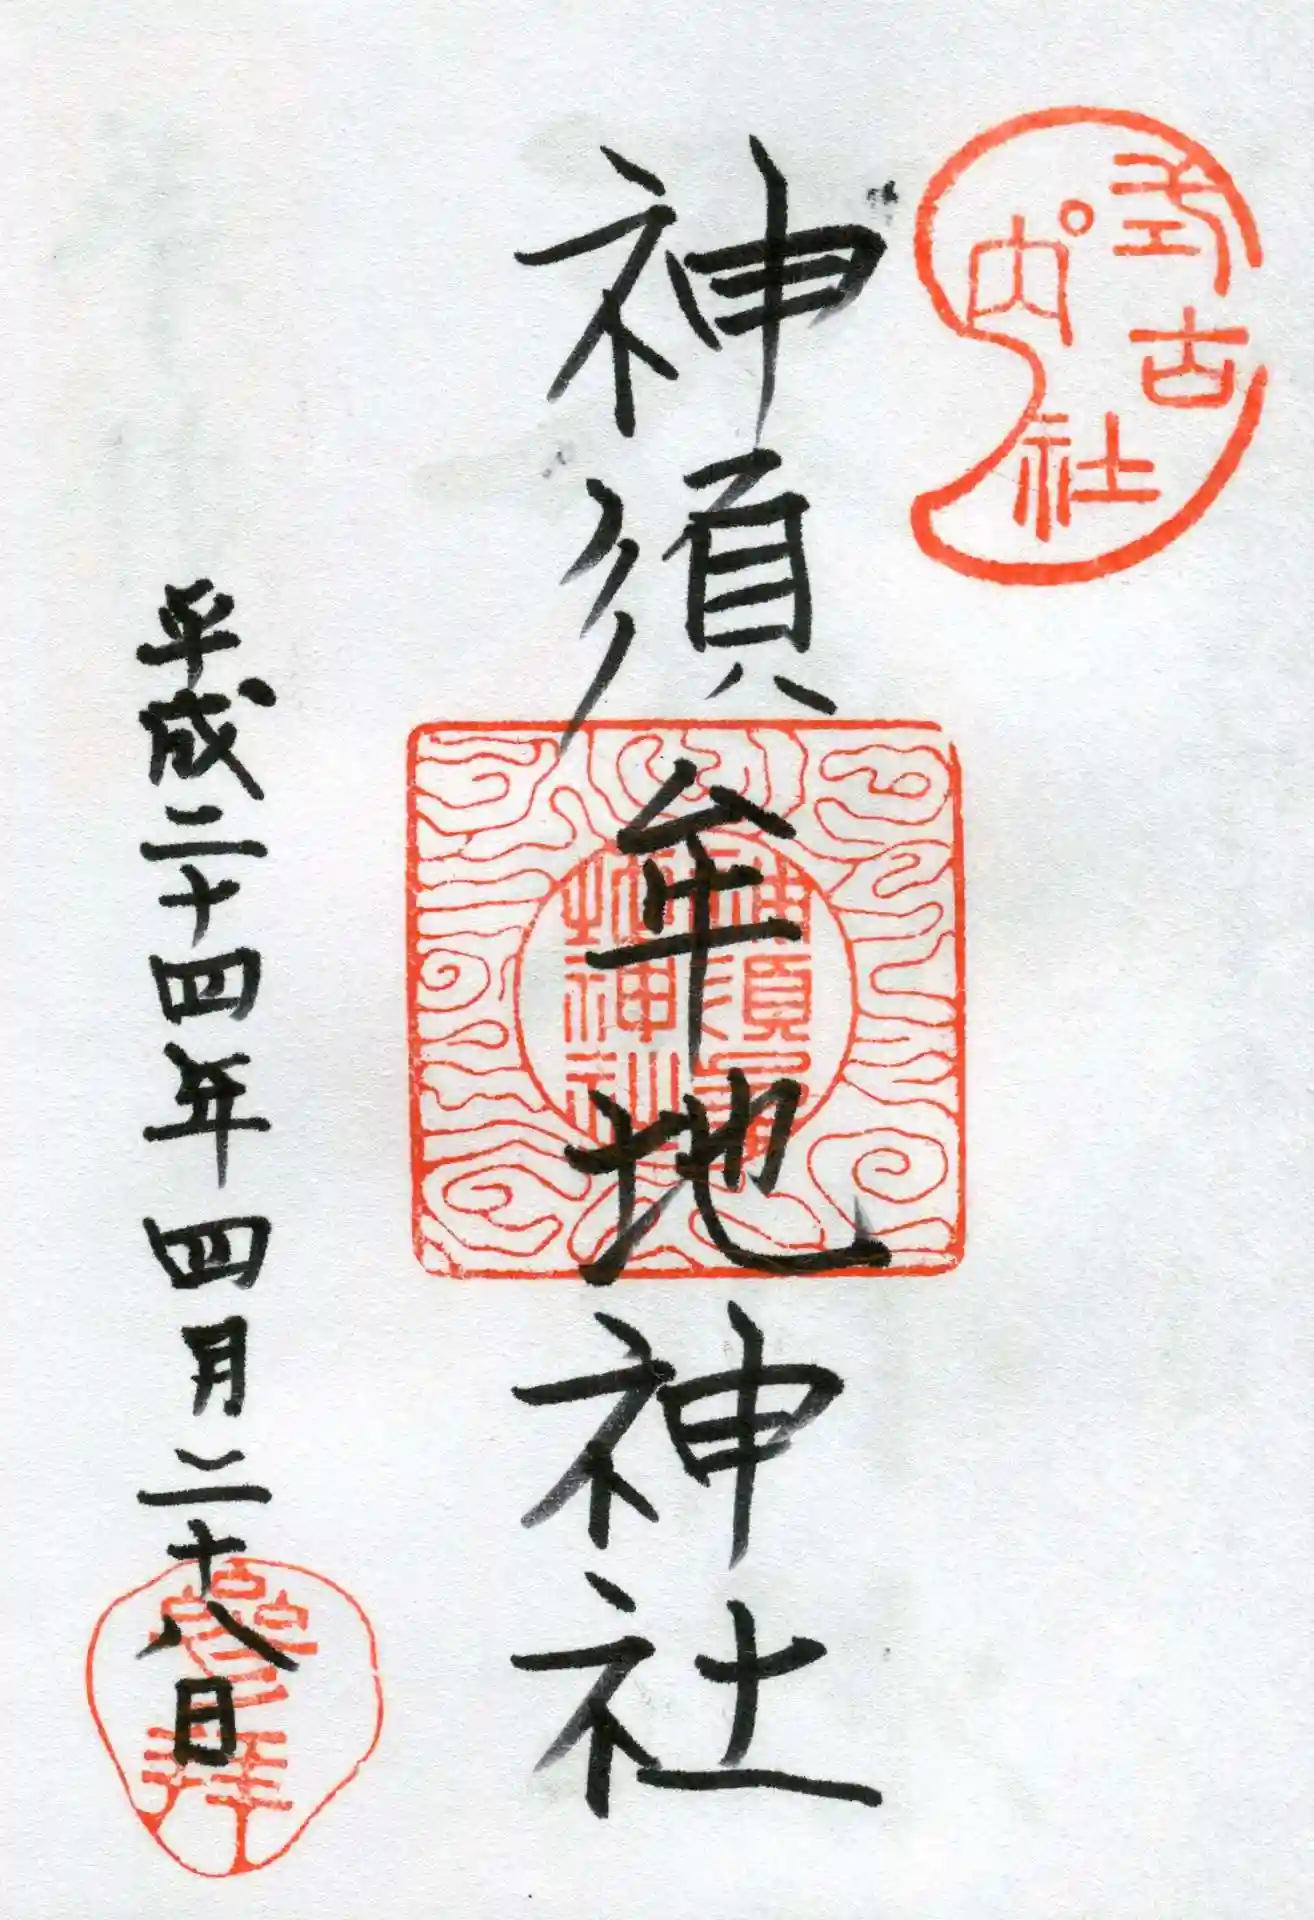 式古
内社
神須牟地神社
神須牟
地神社
平成二十四年四月二十八日
參拝